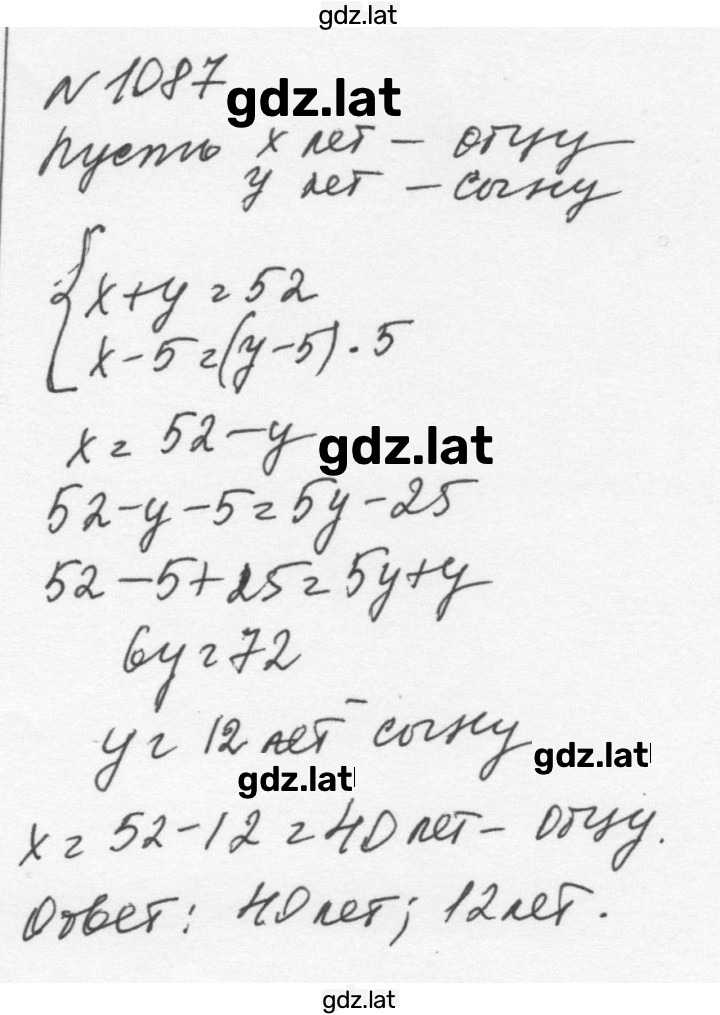 gdz.lat
N 1087
gdz.lat
Пусть x лет – отцу
y лет – сыну
x+y=52
x-5=(y-5)·5
x= 52-y
gdz.lat
52-y-5=5y-25
52-5+25=5y+y
6y=72
y= 12 лет – сыну
gdz.lat
gdz.lat
x= 52-12=40 лет – отцу.
Ответ: 40 лет; 12 лет.
gdz.lat